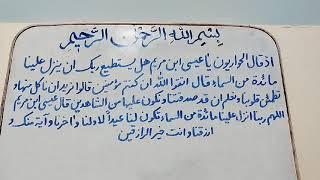 بِسْمِ اللهِ الرَّحْمٰنِ الرَّحِيمِ
اذ قال الحواريون يا عيسى ابن مريم هل يستطيع ربك ان ينزل علينا
مائدة من السماء قال اتقوا الله ان كنتم مؤمنين قالوا نريد ان نأكل منها و
تطمئن قلوبنا و نعلم ان قد صدقتنا و نكون عليها من الشاهدين قال عيسى ابن مريم
اللهم ربنا انزل علينا مائدة من السماء تكون لنا عيداً لاولنا و آخرنا و آية منك و
ارزقنا و انت خير الرازقين